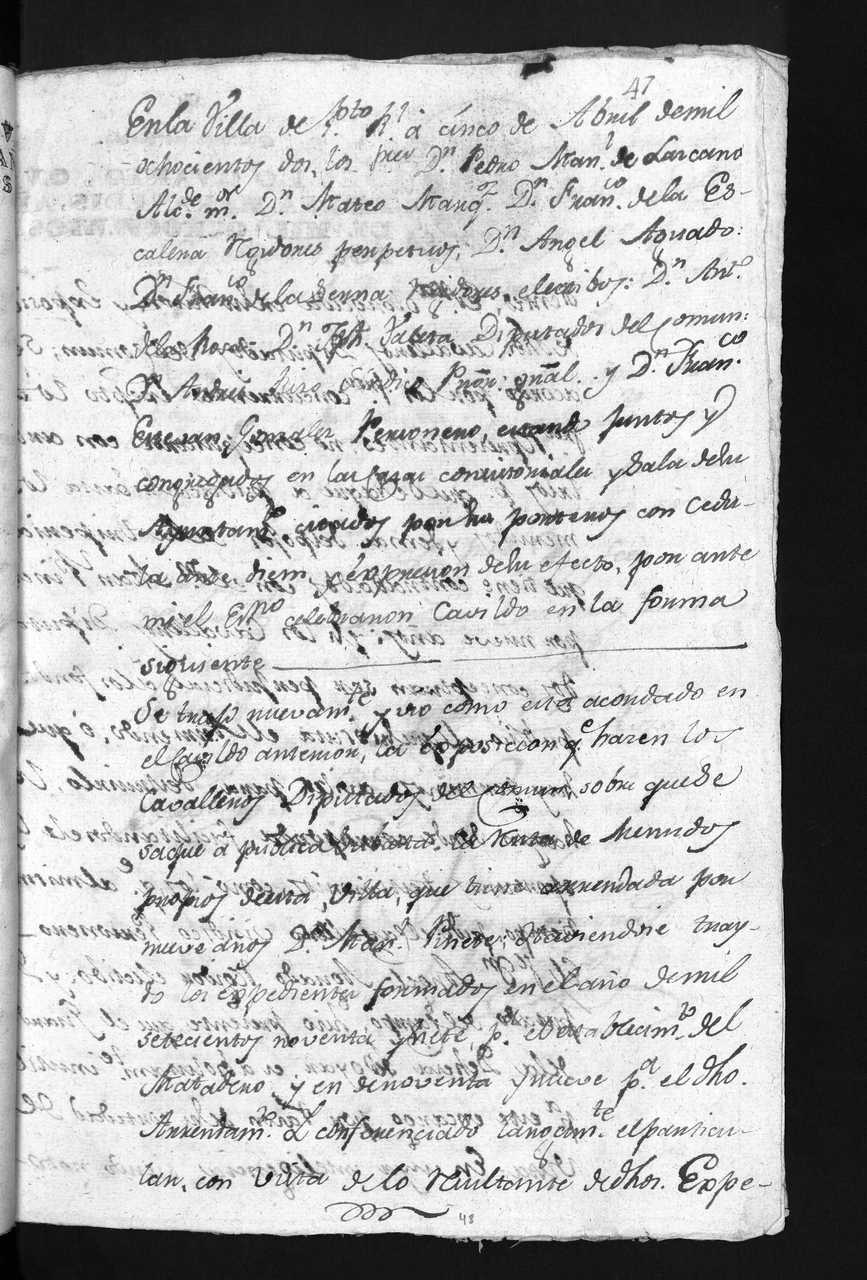 47
En la Villa de Pto. Rl. a cinco de Abril de mil
ochocientos dos, los Sres. Dn. Pedro Manl. de Lascano
Alcde. mor. Dn. Mateo Marqz. Dn. Franco. de la Es-
calena Regidores perpetuos, Dn. Angel Aguado:
Dn. Franco. de la Serna Regidores electibos: Dn. Anto.
de la Rosa, Dn. Diputados del Comun:
Dn. Andres Sindico Pror. gñal. y Dn. Franco.
Estevan Gonzalez Personero, estando juntos y
congregados en las casas consistoriales y Sala de su
Ayuntamto. citados por sus porteros con Cedu-
la ante diem, y expresion de su efecto, por ante
mi el Essno. celebraron Cavildo en la forma
siguiente
Se trajo nuevamte. y vio como está acordado en
el Cavildo anterior, la exposicion qe. hacen los
Cavalleros Diputados del Comun sobre que de
saque á publica subasta la Renta de Menudos
propios de esta Villa, que tiene arrendada por
nueve años Dn. Manl. ; y haviendose tray-
do los expedientes formados en el año de mil
setecientos noventa y siete, pa. el establecimto. del
Matadero y en de noventa y nueve pa. el dho.
Arrendamto. y conferenciado largamte. el particu-
lar, con vista de lo Resultante de dhos. Expe-
48